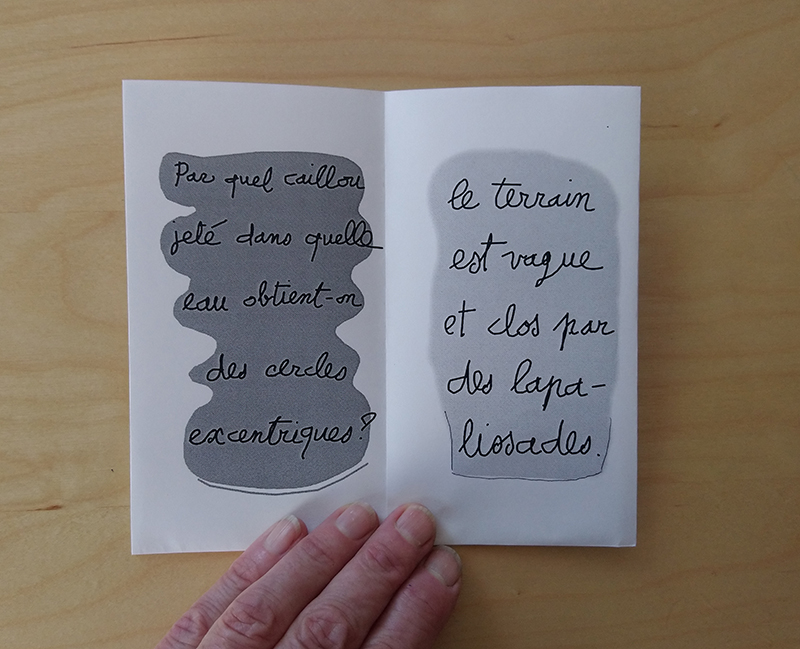 Par quel caillou
jeté dans quelle
eau obtient-on
des cercles
excentriques?
le terrain
est vague
et clos par
des lapa-
liosades.